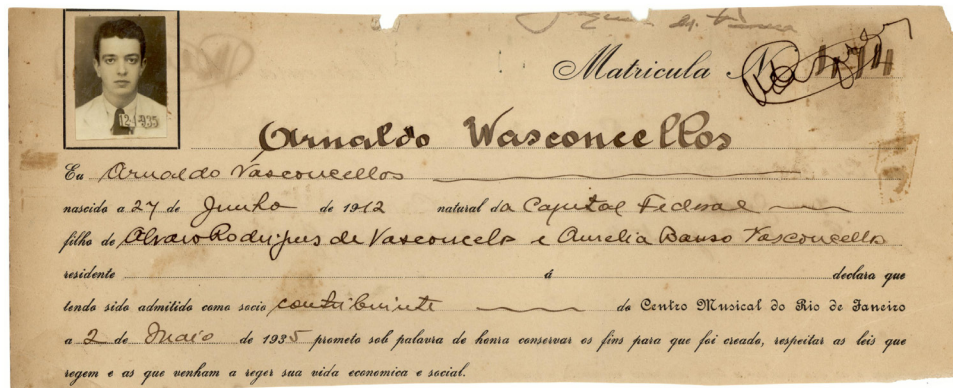 Matricula N
12-1-935
Arnaldo Vasconcellos
Eu Arnaldo Vasconcellos
nascido a 27 de Junho de 1912 natural da Capital Federal
filho de Alvaro Rodrigues de Vasconcelos e Aurelia Vasconcellos
residente á declara que
tendo sido admitido como socio contribuinte do Centro Musical do Rio de Janeiro
a 2 de Maio de 1935 prometo sob palavra de honra conservar os fins para que foi creado, respeitar as leis que
regem e as que venham a reger sua vida economica e social.